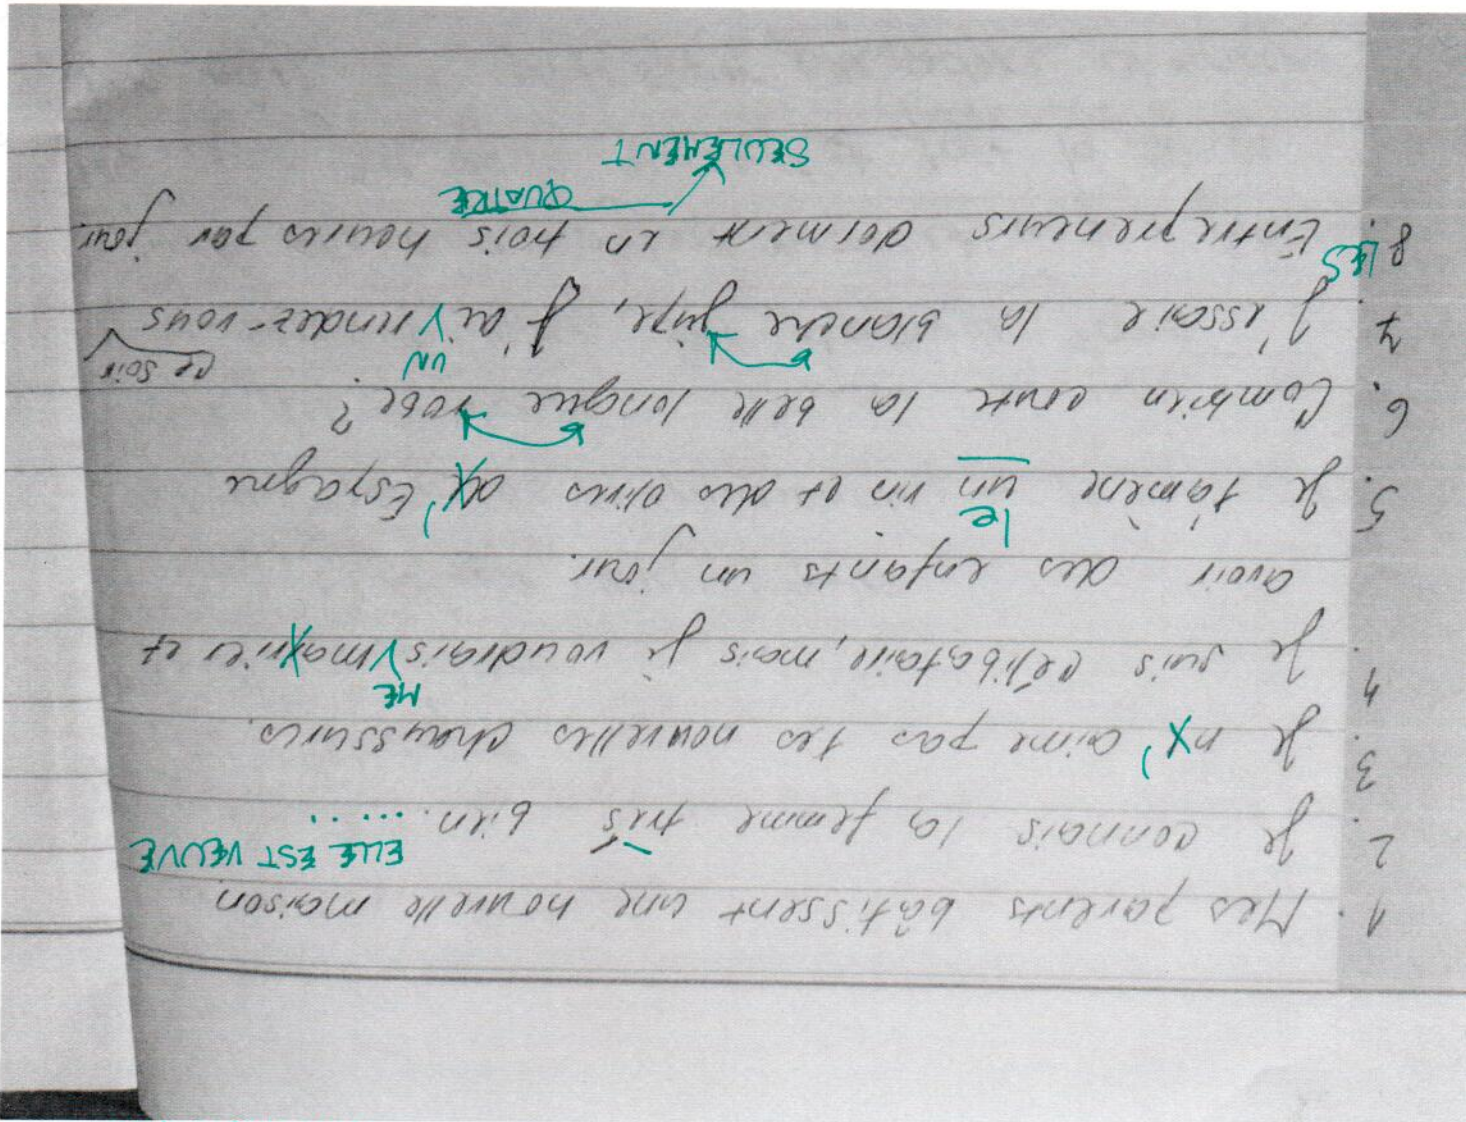 1. Mes parents bâtissent une nouvelle maison
ELLE EST VEUVE
2. Je connais la femme très bien. .....
3. Je n' aime pas tes nouvelles chaussures.
ME
4. Je suis célibataire, mais je voudrais marrier et
avoir des enfants un jour.
le
5. Je t'amène un vin et des olives d' Espagne
6. Combien coute la belle longue robe?
UN ce soir
7. J'essaie la blanche jupe, j'ai rendez-vous
LES
8. Entrepreneurs dorment en trois heures par jour.
QUATRE
SEULEMENT